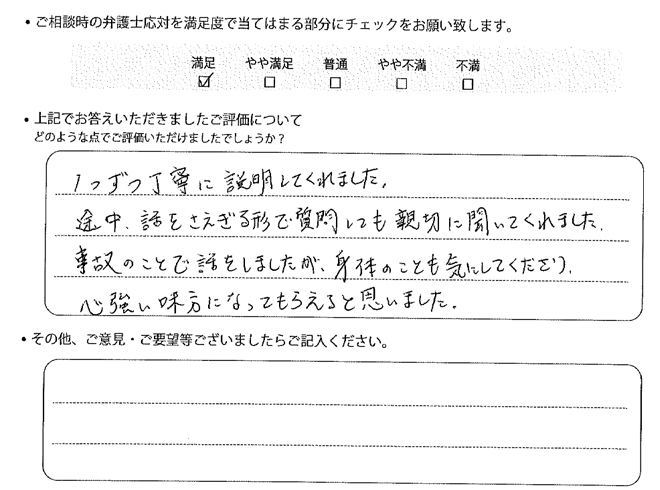 ・ご相談時の弁護士応対を満足度で当てはまる部分にチェックをお願い致します。
満足 やや満足 普通 やや不満 不満
☑ □ □ □ □
・上記でお答えいただきましたご評価について
どのような点でご評価いただけましたでしょうか？
1つずつ丁寧に説明してくれました。
途中、話をさえぎる形で質問しても親切に聞いてくれました。
事故のことで話をしましたが、身体のことも気にしてくださり、
心強い味方になってもらえると思いました。
・その他、ご意見・ご要望等ございましたらご記入ください。